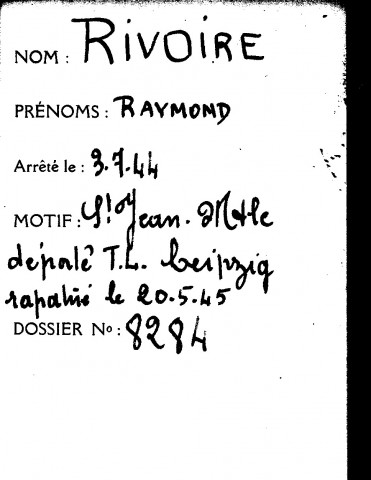 NOM : RIVOIRE
PRÉNOMS : RAYMOND
Arrêté le : 3.7.44
MOTIF : St Jean. Mtle
déporté T.L. Leipzig
rapatrié le 20.5.45
DOSSIER No : 8284